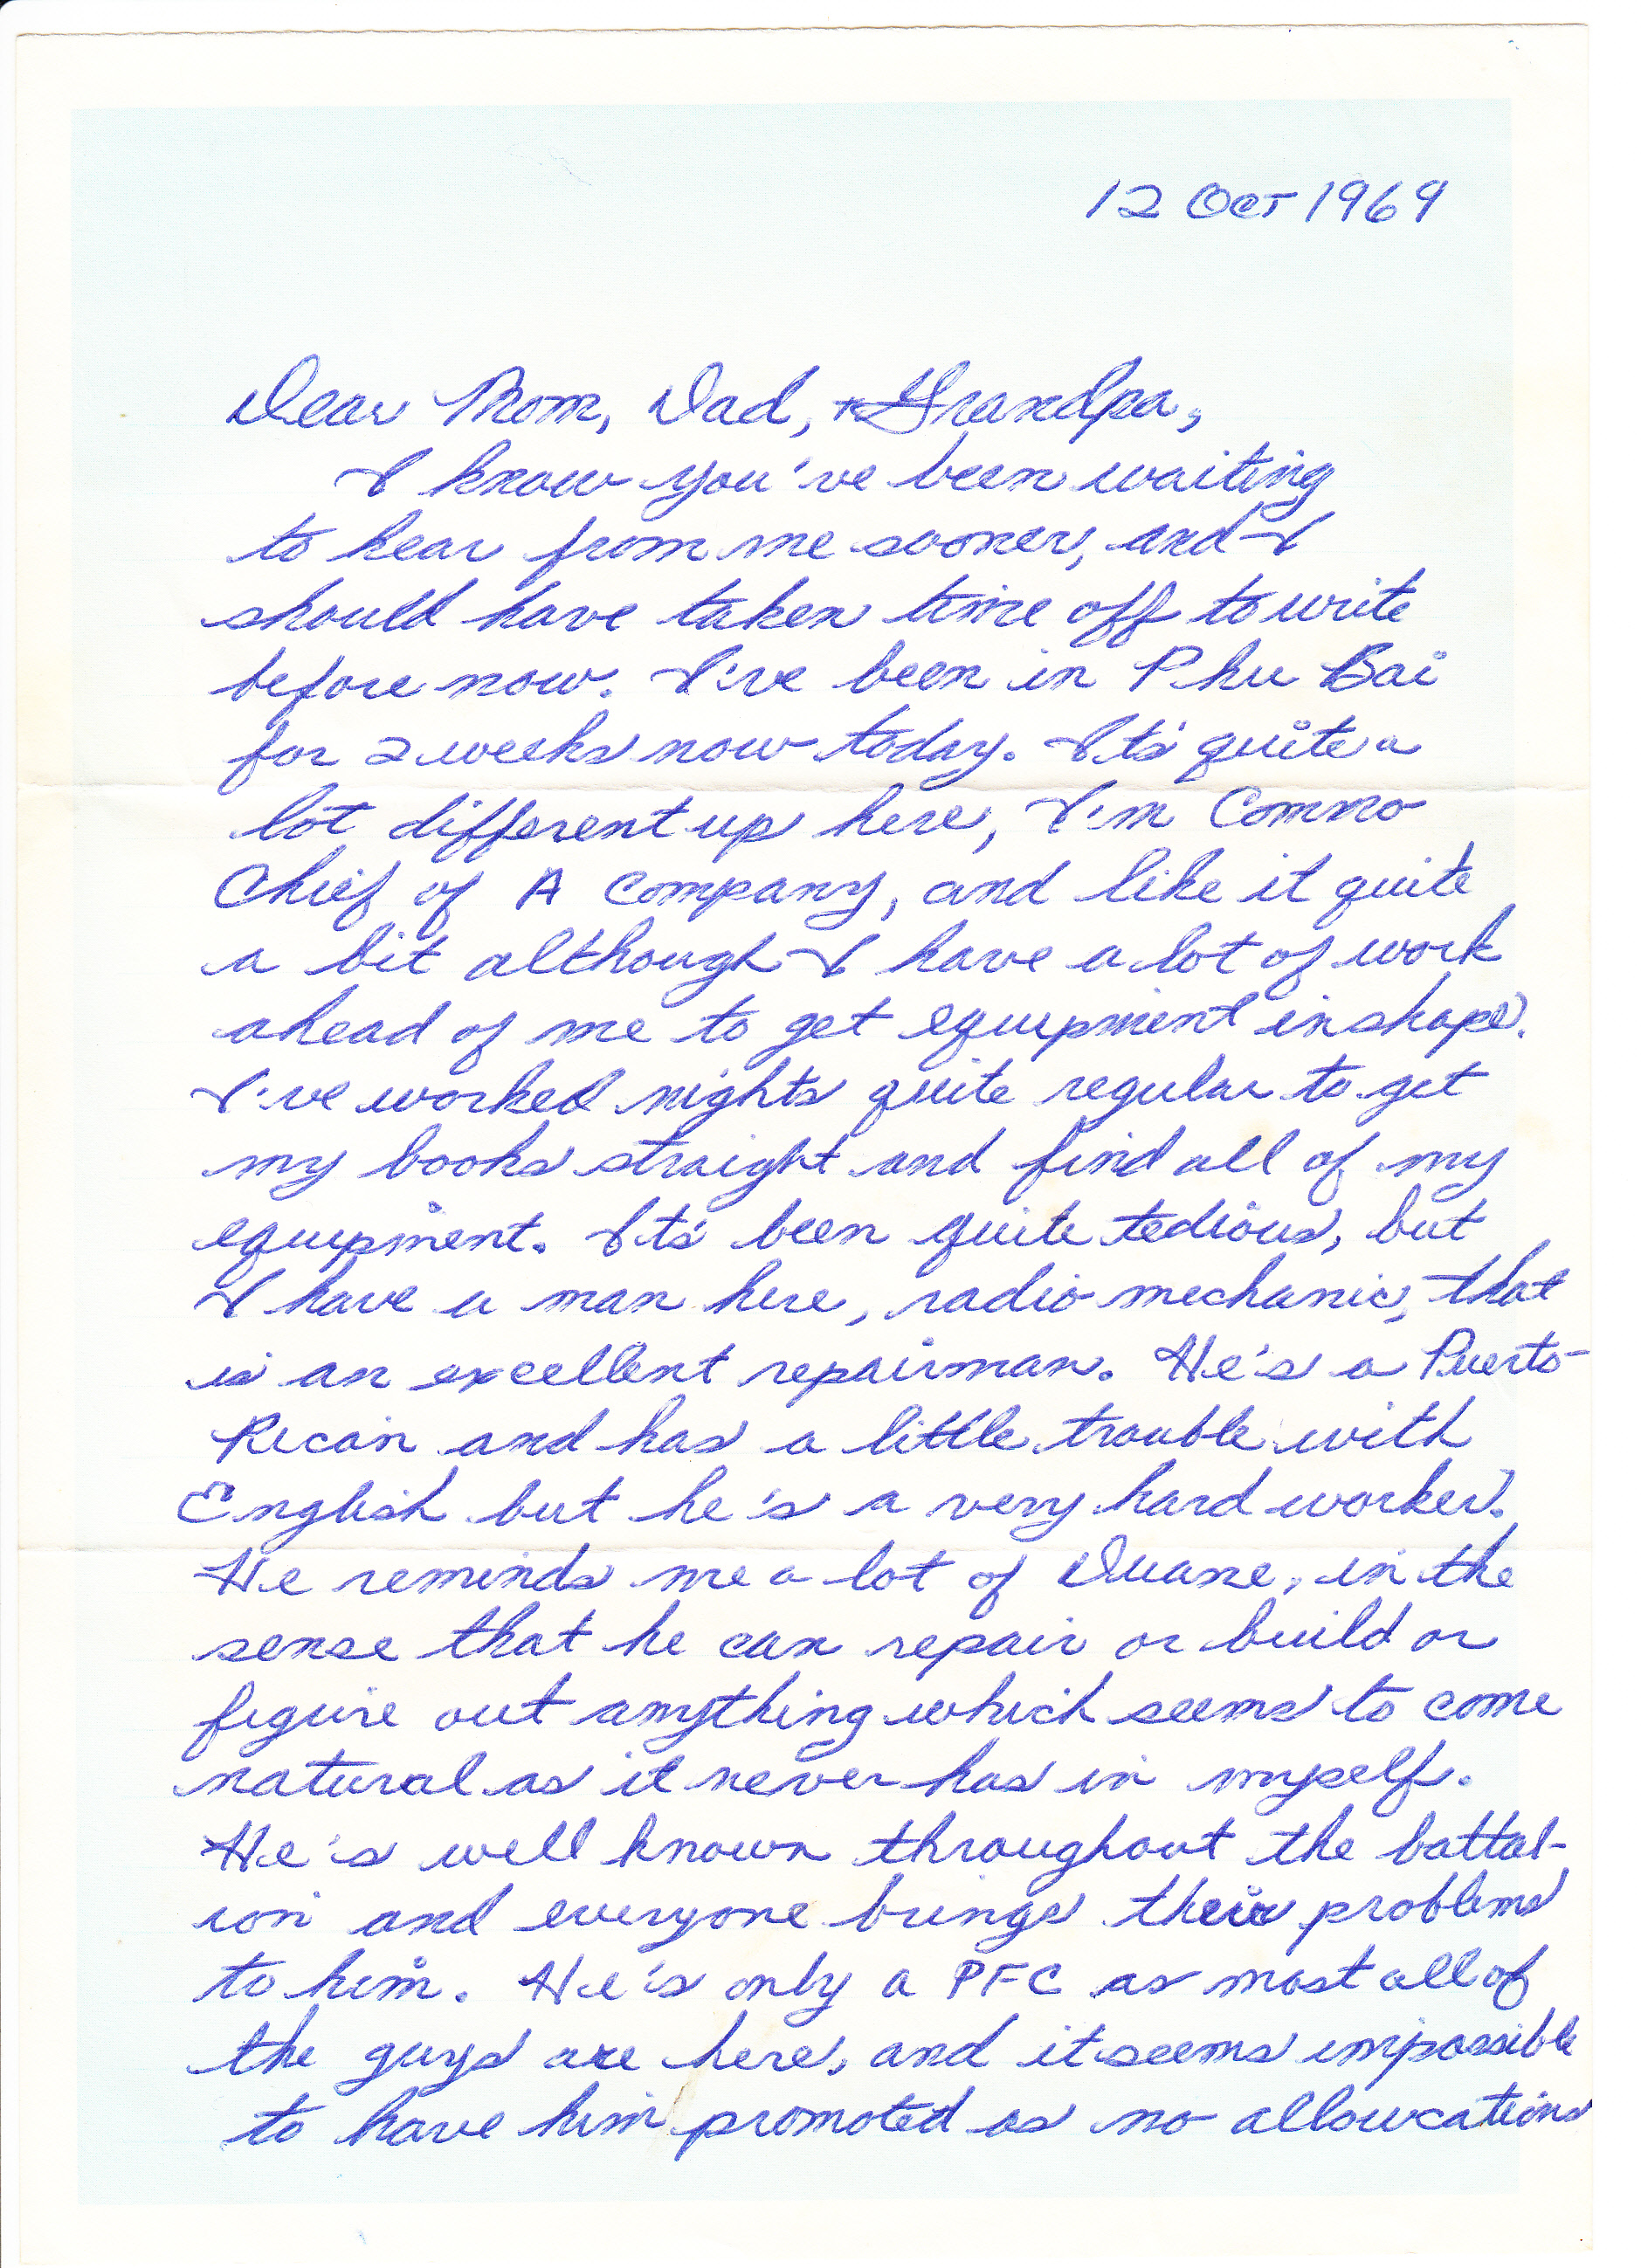 12 Oct 1969
Dear Mom, Dad, + Grandpa,
I know you've been waiting
to hear from me sooner, and I
should have taken time off to write
before now. I've been in Phu Bai
for 2 weeks now today. Its' quite a
lot different up here, I'm Commo
Chief of A Company, and like it quite
a bit although I have a lot of work
ahead of me to get equipment in shape.
I've worked nights quite regular to get
my books straight and find all of my
equipment. Its' been quite tedious, but
I have a man here, radio mechanic, that
is an excellent repairman. He's a Puerto-
Rican and has a little trouble with
English but he's a very hard worker.
He reminds me a lot of Duane, in the
sense that he can repair or build or
figure out anything which seems to come
natural as it never has in myself.
He's well known throughout the battal-
ion and everyone brings their problems
to him. He's only a PFC as most all of
the guys are here, and it seems impossible
to have him promoted as no allowcations